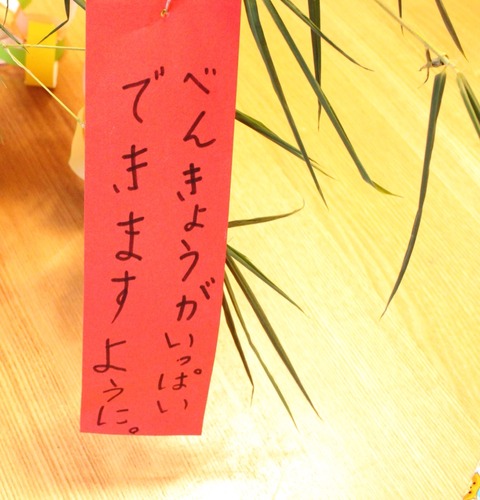 べんきょうがいっぱい
できますように。